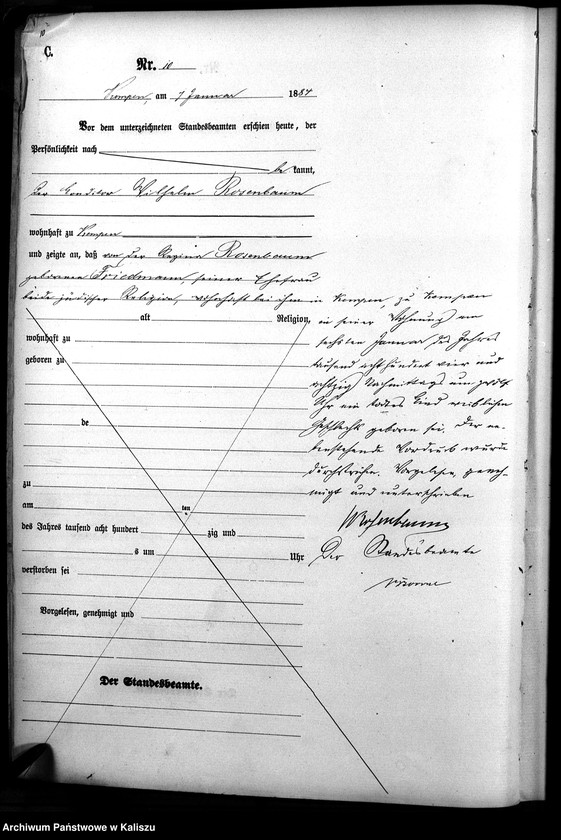 C.
Nr. 10
Kempen, am 7 Januar 1884
Vor dem unterzeichneten Standesbeamten erschien heute, der
Persönlichkeit nach
be kannt,
der Conditor Wilhelm Rosenbaum
wohnhaft zu Kempen
und zeigte an, daß von der Regina Rosenbaum
geborenen Friedmann, seiner Ehefrau
beide jüdischer Religion, wohnhaft bei ihm in Kempen, zu Kempen
alt Religion,
wohnhaft zu
geboren zu
de
zu
am ten
des Jahres tausend acht hundert zig und
s um Uhr
verstorben sei
Vorgelesen, genehmigt und
Der Standesbeamte.
in seiner Wohnung am
sechsten Januar des Jahres
tausend acht hundert vier und
achtzig Nachmittags um zwölf
Uhr ein todtes Kind weiblichen
Geschlechts geboren sei. Der ne-
benstehende Vordruck wurde
durchstrichen. Vorgelesen, geneh-
migt und unterschrieben
WRosenbaum
Der Standesbeamte
Archiwum Państwowe w Kaliszu